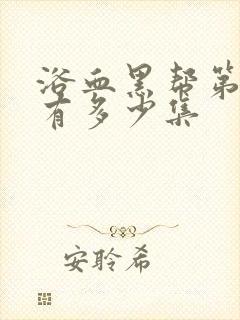 浴血黑帮第
有多少集
安聆希